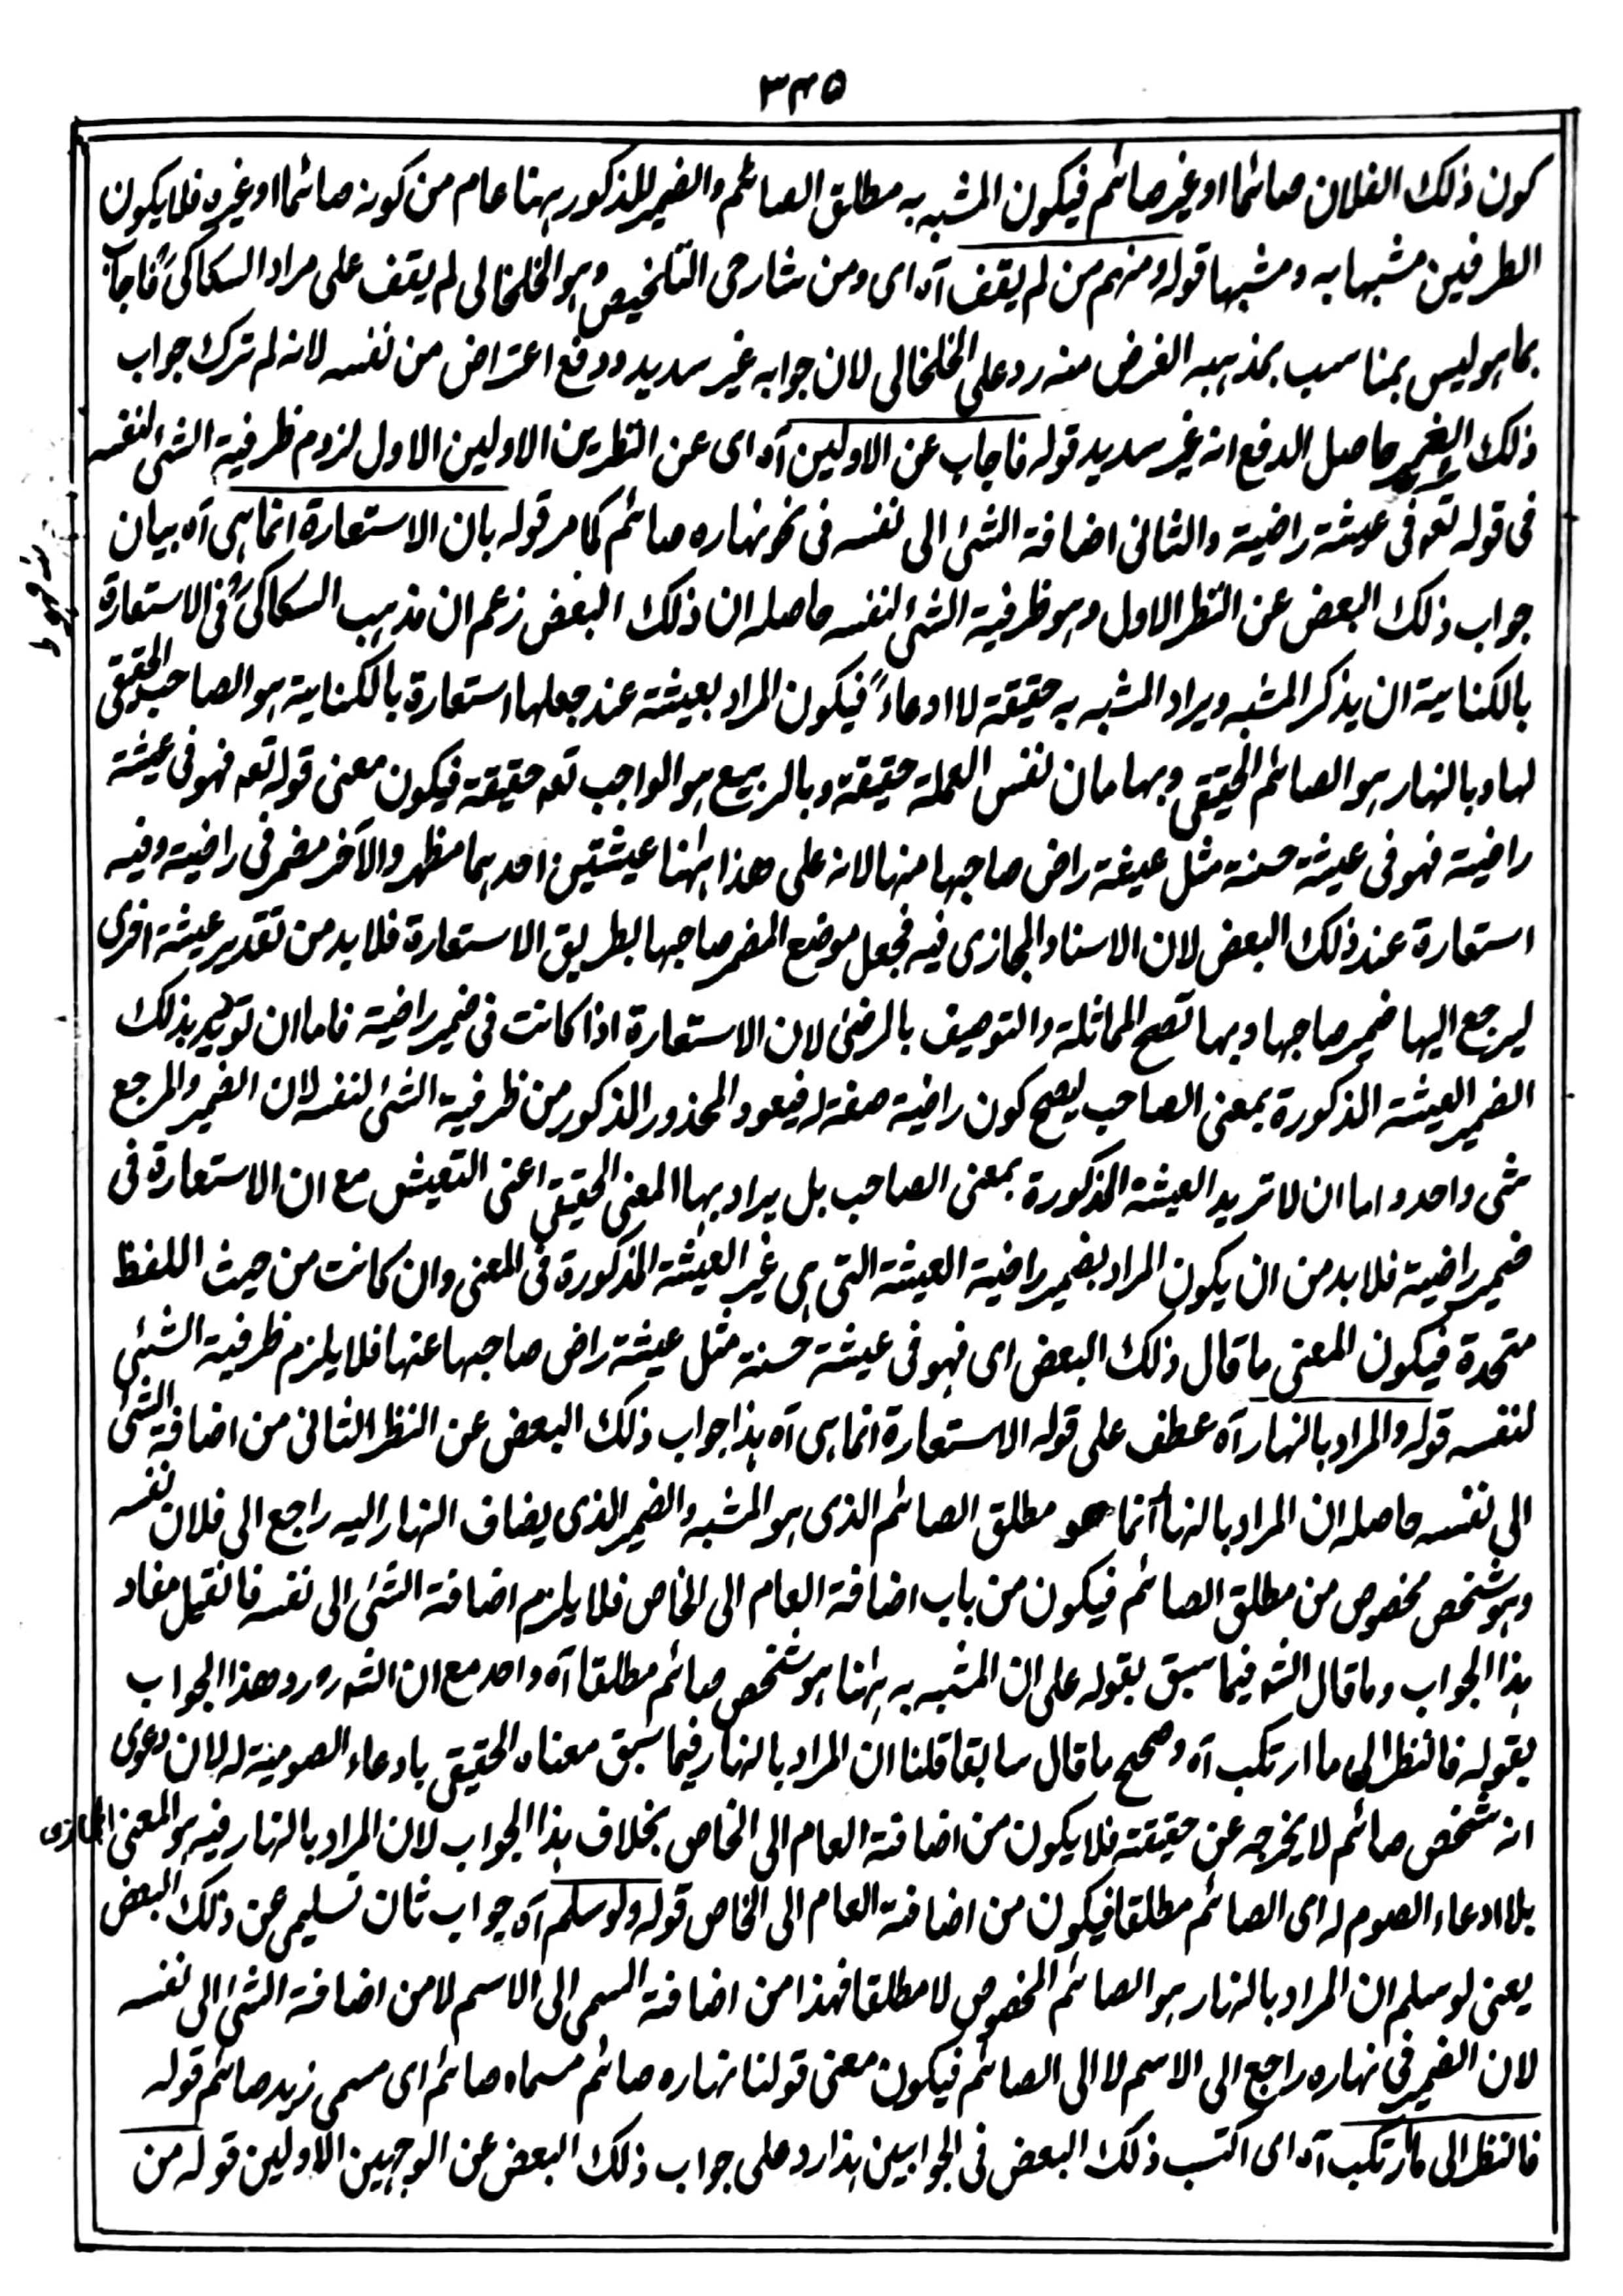 ٣٤٥
كون ذلك الفلان صائما او غير صائم فيكون المشبه به مطلق الصائم والضمير المذكور ههنا عام من كونه صائما او غيره فلا يكون
الطرفين مشبها به ومشبها قوله ومنهم من لم يقف آه اى ومن شارحى التلخيص وهو الخلخالى لم يقف على مراد السكاكى فاجاب
بما هو ليس بمناسب بمذهبه الغرض منه رد على الخلخالى لان جوابه غير سديد ودفع اعتراض من نفسه لانه لم ترك جواب
ذلك حاصل الدفع انه غير سديد قوله فاجاب عن الاولين آه اى عن النظرين الاولين الاول لزوم ظرفية الشئ لنفسه
فى قوله تعه فى عيشة راضية والثانى اضافة الشئ الى نفسه فى نحو نهاره صائم كما مر قوله بان الاستعارة انما هى آه بيان
جواب ذلك البعض عن النظر الاول وهو ظرفية الشئ لنفسه حاصله ان ذلك البعض زعم ان مذهب السكاكى فى الاستعارة
بالكناية ان يذكر المشبه ويراد المشبه به حقيقة لا ادعاءً فيكون المراد بعيشة عند جعلها استعارة بالكناية هو الصاحب الحقيقى
لها وبالنهار هو الصائم الحقيقى وبهامان نفس العملة حقيقة وبالربيع هو الواجب تعه حقيقة فيكون معنى قوله تعه فهو فى عيشة
راضية فهو فى عيشة حسنة مثل عيشة راض صاحبها منها لانه على هذا ههنا عيشتين احدهما مظهر والآخر مضمر فى راضية وفيه
استعارة عند ذلك البعض لان الاسناد المجازى فيه فجعل موضع المضمر صاحبها بطريق الاستعارة فلا بد من تقدير عيشة اخرى
ليرجع اليها ضمير صاحبها وبها تصح المماثلة والتوصيف بالرضى لان الاستعارة اذا كانت فى ضمير راضية فاما ان تريد بذلك
الضمير العيشة المذكورة بمعنى الصاحب ليصح كون راضية صفة له فيعود المحذور المذكور من ظرفية الشئ لنفسه لان الضمير والمرجع
شى واحد واما ان لا تريد العيشة المذكورة بمعنى الصاحب بل يراد بها المعنى الحقيقى اعنى التعيش مع ان الاستعارة فى
ضمير راضية فلا بد من ان يكون المراد بضمير راضية العيشة التى هى غير العيشة المذكورة فى المعنى وان كانت من حيث اللفظ
متحدة فيكون المعنى ما قال ذلك البعض اى فهو فى عيشة حسنة مثل عيشة راض صاحبها عنها فلا يلزم ظرفية الشئ
لنفسه قوله والمراد بالنهار آه عطف على قوله الاستعارة انما هى آه هذا جواب ذلك البعض عن النظر الثانى من اضافة الشئ
الى نفسه حاصله ان المراد بالنهار انما هو مطلق الصائم الذى هو المشبه والضمير الذى يضاف النهار اليه راجع الى فلان نفسه
وهو شخص مخصوص من مطلق الصائم فيكون من باب اضافة العام الى الخاص فلا يلزم اضافة الشئ الى نفسه فان قيل مفاد
هذا الجواب وما قال الشه فيما سبق بقوله على ان المشبه به ههنا هو شخص صائم مطلقا آه واحد مع ان الشه رد هذا الجواب
بقوله فانظر الى ما ارتكب آه وصحح ما قال سابقا قلنا ان المراد بالنهار فيما سبق معناه الحقيقى بادعاء الصومية له لان دعوى
انه شخص صائم لا يخرجه عن حقيقته فلا يكون من اضافة العام الى الخاص بخلاف هذا الجواب لان المراد بالنهار فيه هو المعنى المجازى
بلا ادعاء الصوم له اى الصائم مطلقا فيكون من اضافة العام الى الخاص قوله ولو سلم آه جواب ثان تسليمى عن ذلك البعض
يعنى لو سلم ان المراد بالنهار هو الصائم المخصوص لا مطلقا فهذا من اضافة المسمى الى الاسم لا من اضافة الشئ الى نفسه
لان الضمير فى نهاره راجع الى الاسم لا الى الصائم فيكون معنى قولنا نهاره صائم مسماه صائم اى مسمى زيد صائم قوله
فانظر الى ما ارتكب آه اى اكتسب ذلك البعض فى الجوابين هذا رد على جواب ذلك البعض عن الوجهين الاولين قوله من